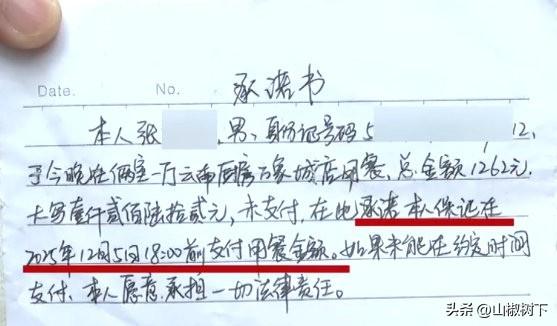 Date. No. 承诺书
本人张 男、身份证号码5 12,
于今晚在俩室一厅云南厨房万象城店用餐、总金额1262元.
大写壹仟贰佰陆拾贰元,未支付.在此承诺本人保证在
2025年12月5日18:00前支付用餐金额。如果未能在约定时间
支付、本人愿意承担一切法律责任。
头条 @山椒树下